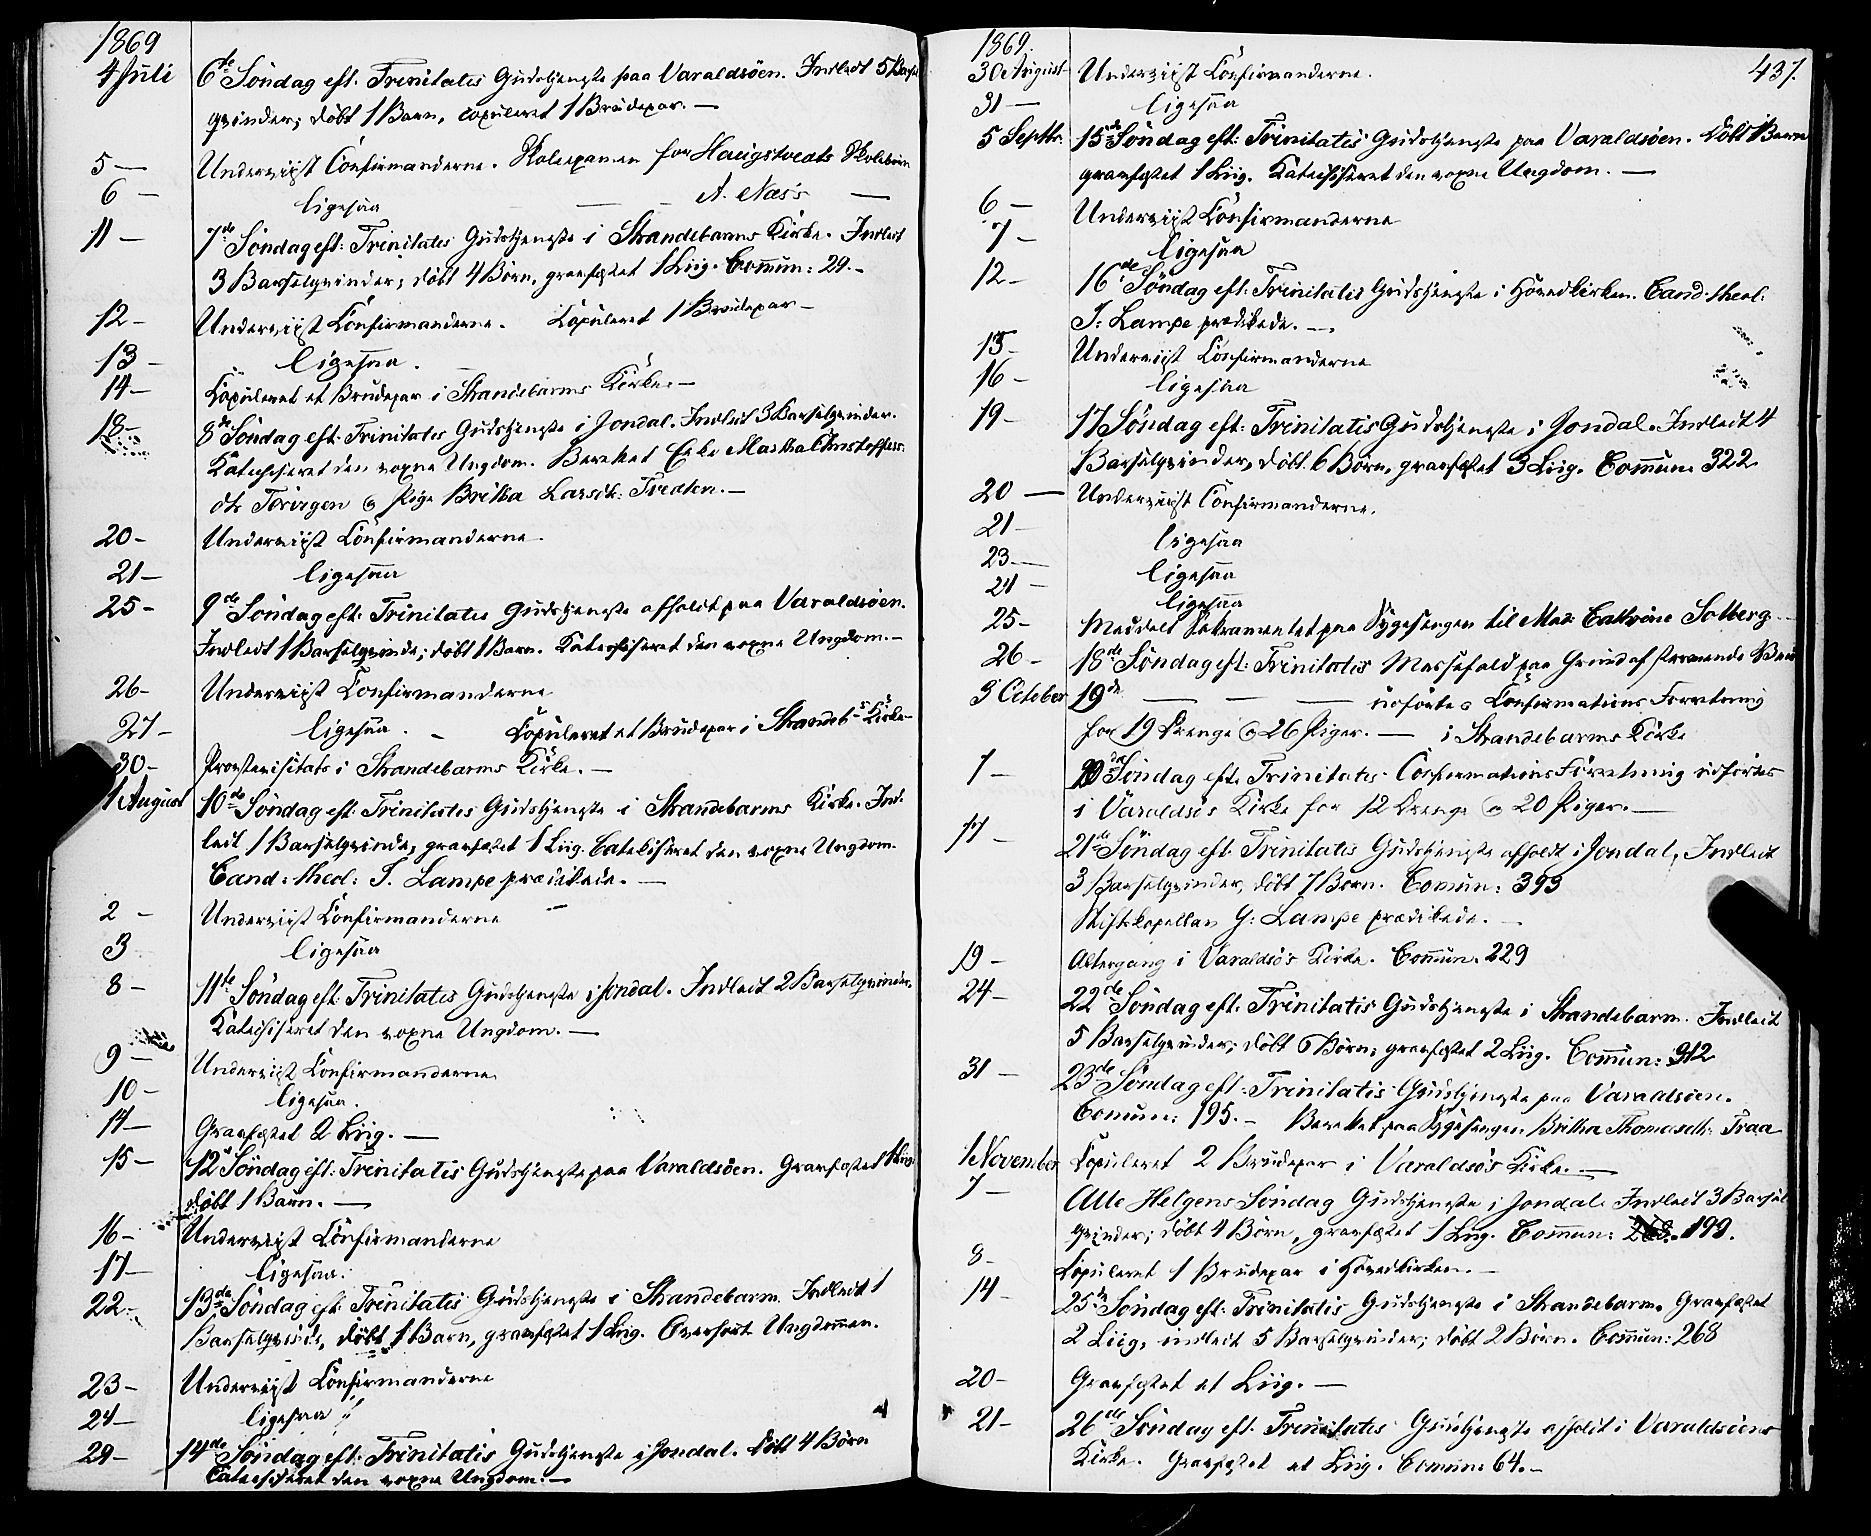 1869
4 Juli 6te Søndag eft. Trinitatis Gudstjeneste paa Varaldsöen. Indledt 5 Barsel
qvinder; døbt 1 Barn, copuleret 1 Brudepar. —
5 — Underviist Confirmanderne. Skoleexamen for Haugstvedts Skolebørn
6 — ligesaa — — A. Næs's —
11 — 7de Søndag eft: Trinitatis Gudstjeneste i Strandebarms Kirke. Indledt
3 Barselqvinder; døbt 4 Børn, gravfæstet 1 Liig. Commun: 29. —
12 — Underviist Confirmanderne. Copuleret 1 Brudepar —
13 — ligesaa. —
14 — Copuleret et Brudepar i Strandebarms Kirke. —
18 — 8de Søndag eft. Trinitatis Gudstjeneste i Jondal. Indledt 3 Barselqvinder.
Katechiseret den voxne Ungdom. Berettet Enke Martha Christoffers
dtr Torvigen & Pige Britha Larsdt: Tredten. —
20 — Underviist Confirmanderne
21 — ligesaa
25 — 9de Søndag eft. Trinitatis Gudstjeneste afholdt paa Varaldsöen.
Indledt 1 Barselqvinde; døbt 1 Barn. Katechiseret den voxne Ungdom. —
26 — Underviist Confirmanderne
27 — ligesaa. — Copuleret et Brudepar i Strandeb—s Kirke —
30 — Provstevisitats i Strandebarms Kirke. —
1 August 10de Søndag eft: Trinitatis Gudstjeneste i Strandebarms Kirke. Ind-
ledt 1 Barselqvinde, gravfæstet 1 Liig. Cateliseret den voxne Ungdom.
Cand: theol: J. Lampe prædikede. —
2 — Underviist Confirmanderne —
3 ligesaa
8 — 11te Søndag eft. Trinitatis Gudstjeneste i Jondal. Indledt 2 Barselqvinder.
Katechiseret den voxne Ungdom. —
9 — Underviist Confirmanderne
10 — ligesaa.
14 — Gravfæstet 2 Liig. —
15 — 12te Søndag eft: Trinitatis Gudstjeneste paa Varaldsöen. Gravfæstet 1 Liig
døbt 1 Barn. —
16 — Underviist Confirmanderne
17 — ligesaa.
22 — 13de Søndag eft. Trinitatis Gudstjeneste i Strandebarm. Indledt 1
Barselqvinde, døbt 1 Barn, gravfæstet 1 Liig. Overhørt Ungdommen.
23 — Underviist Confirmanderne
24 — ligesaa
29 — 14de Søndag eft: Trinitatis Gudstjeneste i Jondal. Døbt 4 Børn
Catechiseret den voxne Ungdom. —
1869.
437.
30 August Underviist Confirmanderne.
31 — ligesaa
5 Septbr. 15de Søndag eft: Trinitatis Gudstjeneste paa Varaldsöen. Døbt 1 Barn
gravfæstet 1 Liig. Katechiseret den voxne Ungdom. —
6 — Underviist Confirmanderne
7 — ligesaa
12 — 16de Søndag eft: Trinitatis Gudstjeneste i Hovedkirken. Cand. theol:
J: Lampe prædikede. —
15 — Underviist Confirmanderne
16 — ligesaa
19 — 17 Søndag eft: Trinitatis Gudstjeneste i Jondal. Indledt 4
Barselqvinder, døbt 6 Børn, gravfæstet 3 Liig. Commun. 322
20 — Underviist Confirmanderne.
21 — ligesaa
23 — ligesaa
24 — ligesaa
25 — Meddelt Sakramentet paa Sygesengen til Mad: Cathrine Solberg
26 — 18de Søndag eft: Trinitatis Messefald paa Grund af stormende Veir
3 October 19de — — udførtes Confirmations Forretning
for 19 Drenge & 26 Piger. — i Strandebarms Kirke
7 — 20de Søndag eft. Trinitatis Confirmations Forretning udførtes
i Varaldsös Kirke for 12 Drenge & 20 Piger. —
17 — 21de Søndag eft. Trinitatis Gudstjeneste afholdt i Jondal, Indledt
3 Barselqvinder, døbt 7 Børn. Comun: 393
Stiftskapellan J: Lampe prædikede. —
19 — Altergang i Varaldsös Kirke. Commun. 229
24 — 22de Søndag eft. Trinitatis Gudstjeneste i Strandebarm. Indledt
5 Barselqvinder; døbt 6 Børn; gravfæstet 2 Liig. Commun: 312
31 — 23de Søndag eft: Trinitatis Gudstjeneste paa Varaldsöen.
Comun: 195. — Berettet paa Sygesengen Britha Thomasdtr: Traa
1 November Copuleret 2 Brudepar i Varaldsös Kirke. —
7 — Alle Helgens Søndag Gudstjeneste i Jondal. Indledt 3 Barsel
qvinder; døbt 4 Børn, gravfæstet 1 Liig. Commun: 199.
8 — Copuleret 1 Brudepar i Hovedkirken. —
14 — 25de Søndag eft: Trinitatis Gudstjeneste i Strandebarm. Gravfæstet
2 Liig, indledt 5 Barselqvinder; døbt 2 Børn. Commun: 268
20 — Gravfæstet et Liig. —
21 — 26de Søndag eft. Trinitatis Gudstjeneste afholdt i Varaldsöens
Kirke. Gravfæstet et Liig. Comun: 64. —